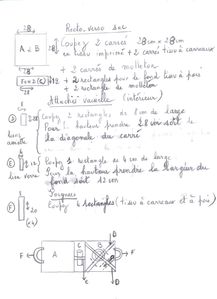 Recto verso sac
28
A = B
28
Coupez 2 carrés 28 cm x 28 cm
en tissu imprimé + 2 carrés tissu à carreaux
+ 2 carrés de molleton
+ 2 rectangles pour le fond tissu à pois
+ 2 rectangles de molleton
Attache vaisselle (intérieur)
D
Coupez 2 rectangles de cm de large
Pour la hauteur prendre 28 cm soit
la diagonale du carré
E
Coupez 1 rectangle de 4 cm de large
Pour la hauteur prendre la largeur du
fond soit 12 cm
Poignées
F
Coupez 4 rectangles (tissu à carreaux et à pois)
28
(x4)
D
D
F
A
C
B
F
E
D